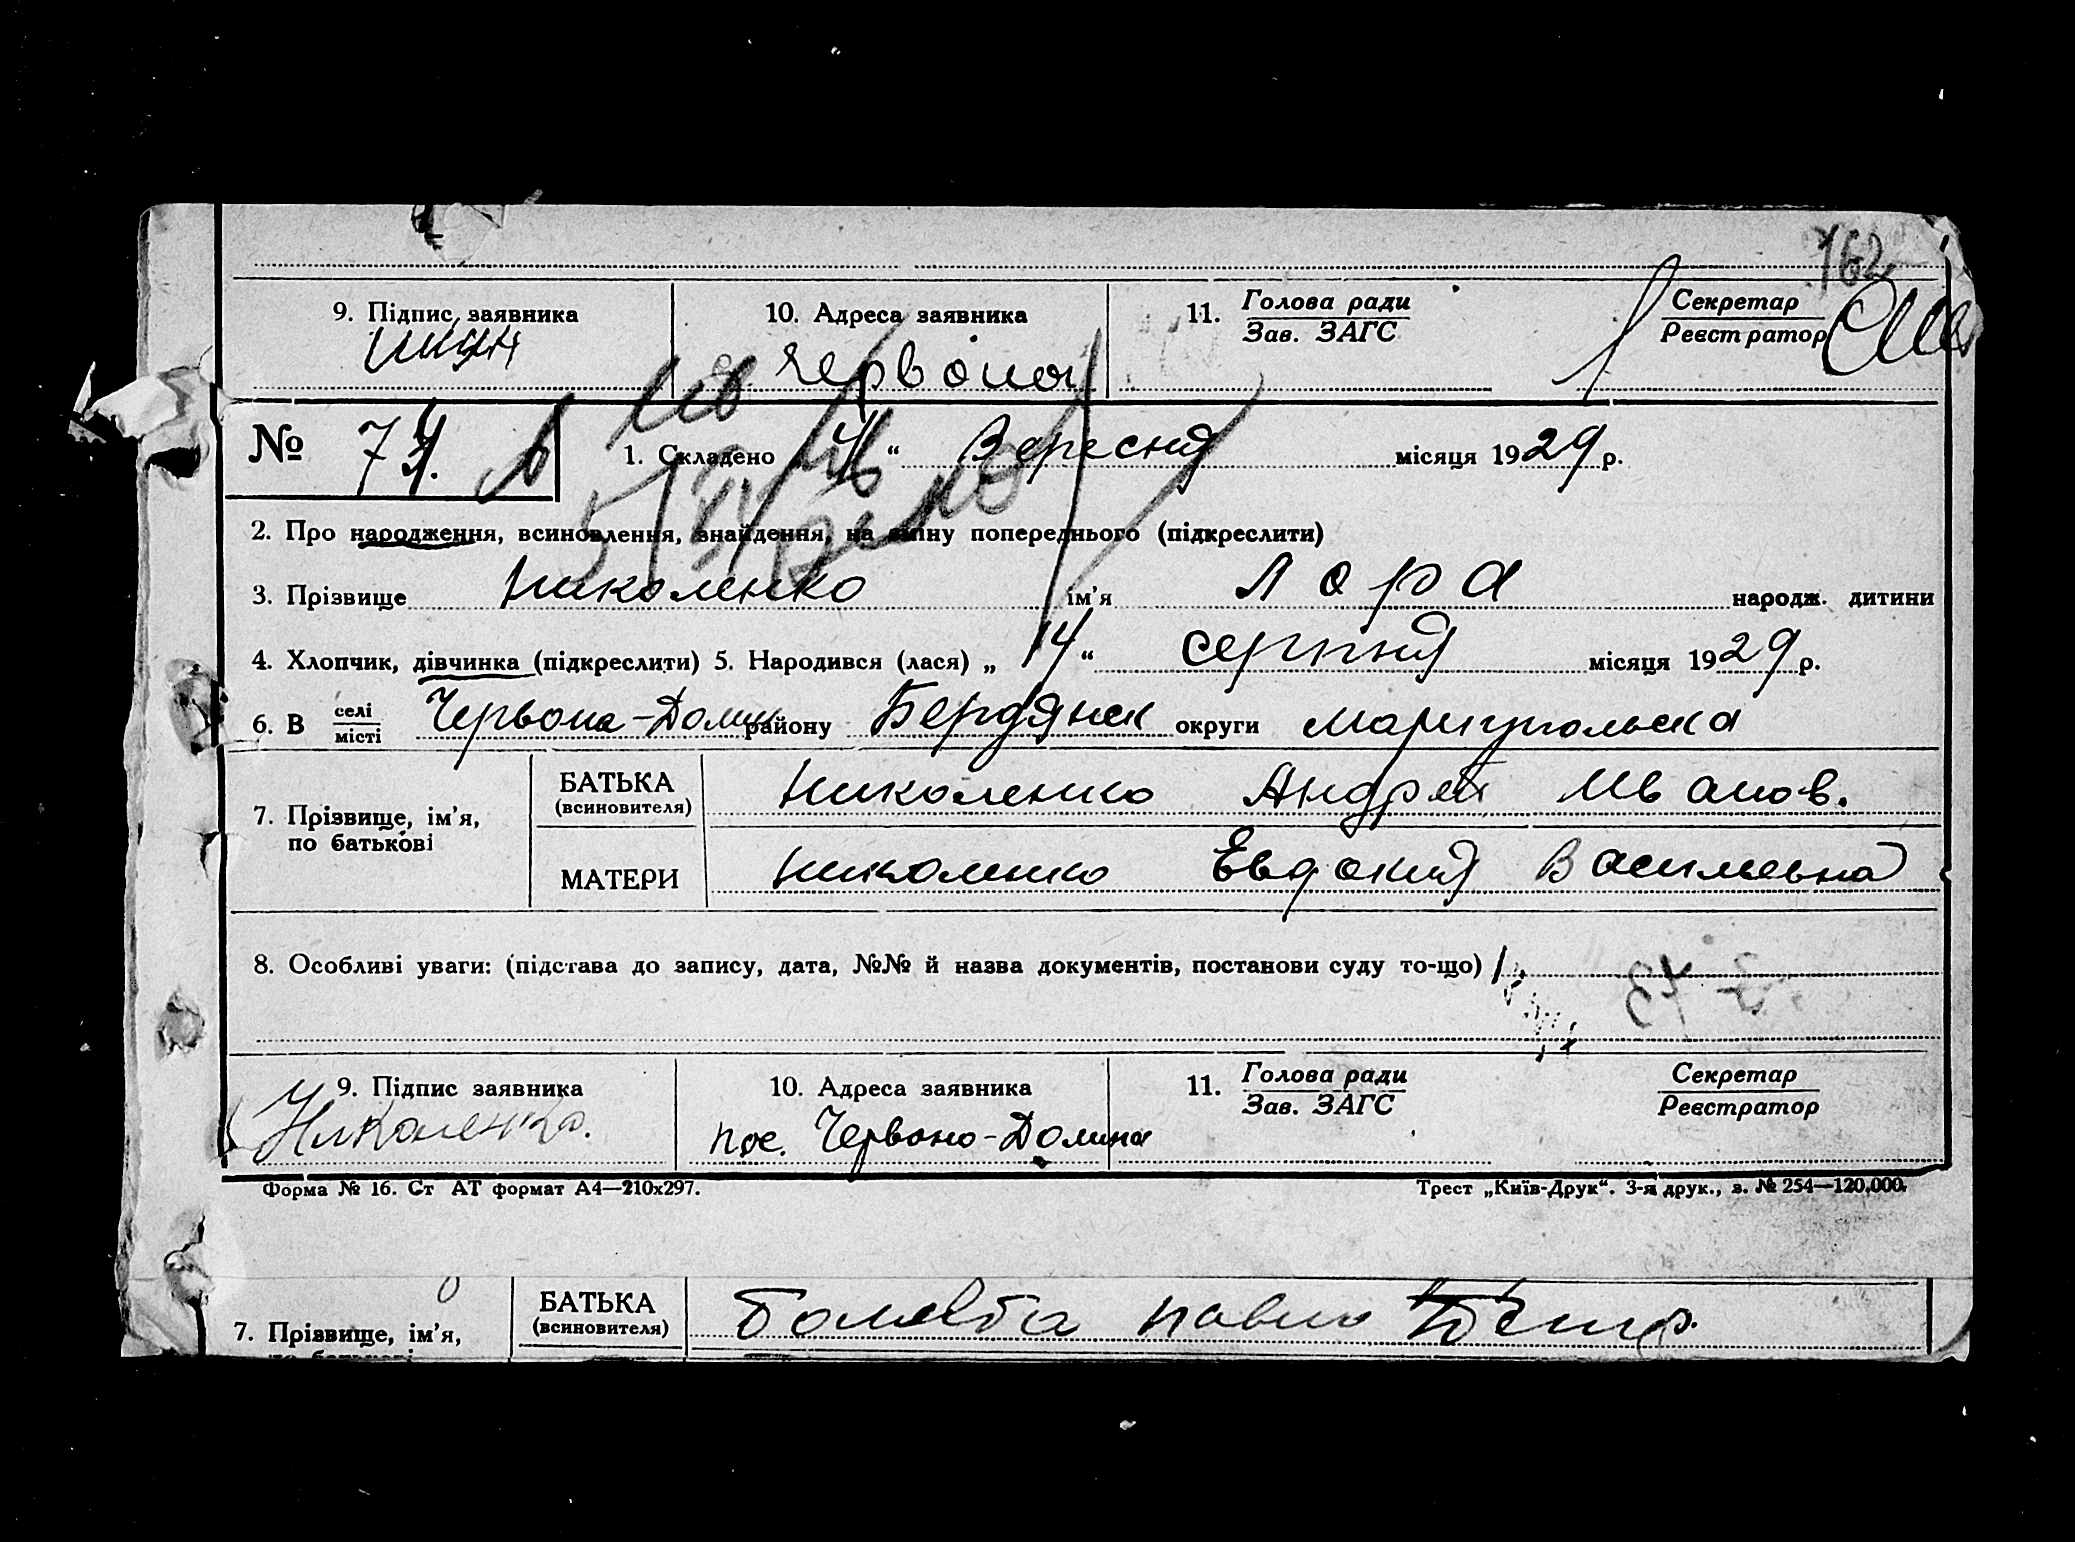 162
9. Підпис заявника 10. Адреса заявника 11. Голова ради Секретар
Зав. ЗАГС Реєстратор
Червона
№ 74. 1. Складено 4 “ Вересня місяця 1929 р.
2. Про народження, всиновлення, знайдення, на зміну попереднього (підкреслити)
3. Прізвище Николенко ім'я Лора народж. дитини
4. Хлопчик, дівчинка (підкреслити) 5. Народився (лася) „ 14 “ серпня місяця 1929 р.
6. В селі Червона-Доли району Бердянск округи Мариупольска
місті
7. Прізвище, ім'я, по батькові
БАТЬКА (всиновителя) Николенко Андрей Иванов.
МАТЕРИ Николенко Евдокия Васильевна
8. Особливі уваги: (підстава до запису, дата, №№ й назва документів, постанови суду то-що)
9. Підпис заявника 10. Адреса заявника 11. Голова ради Секретар
Зав. ЗАГС Реєстратор
Николенко. пос. Червоно-Долина
Форма № 16. Ст АТ формат А4—210х297. Трест „Київ-Друк“. 3-я друк., з. № 254—120,000.
7. Прізвище, ім'я,
БАТЬКА (всиновителя) павло